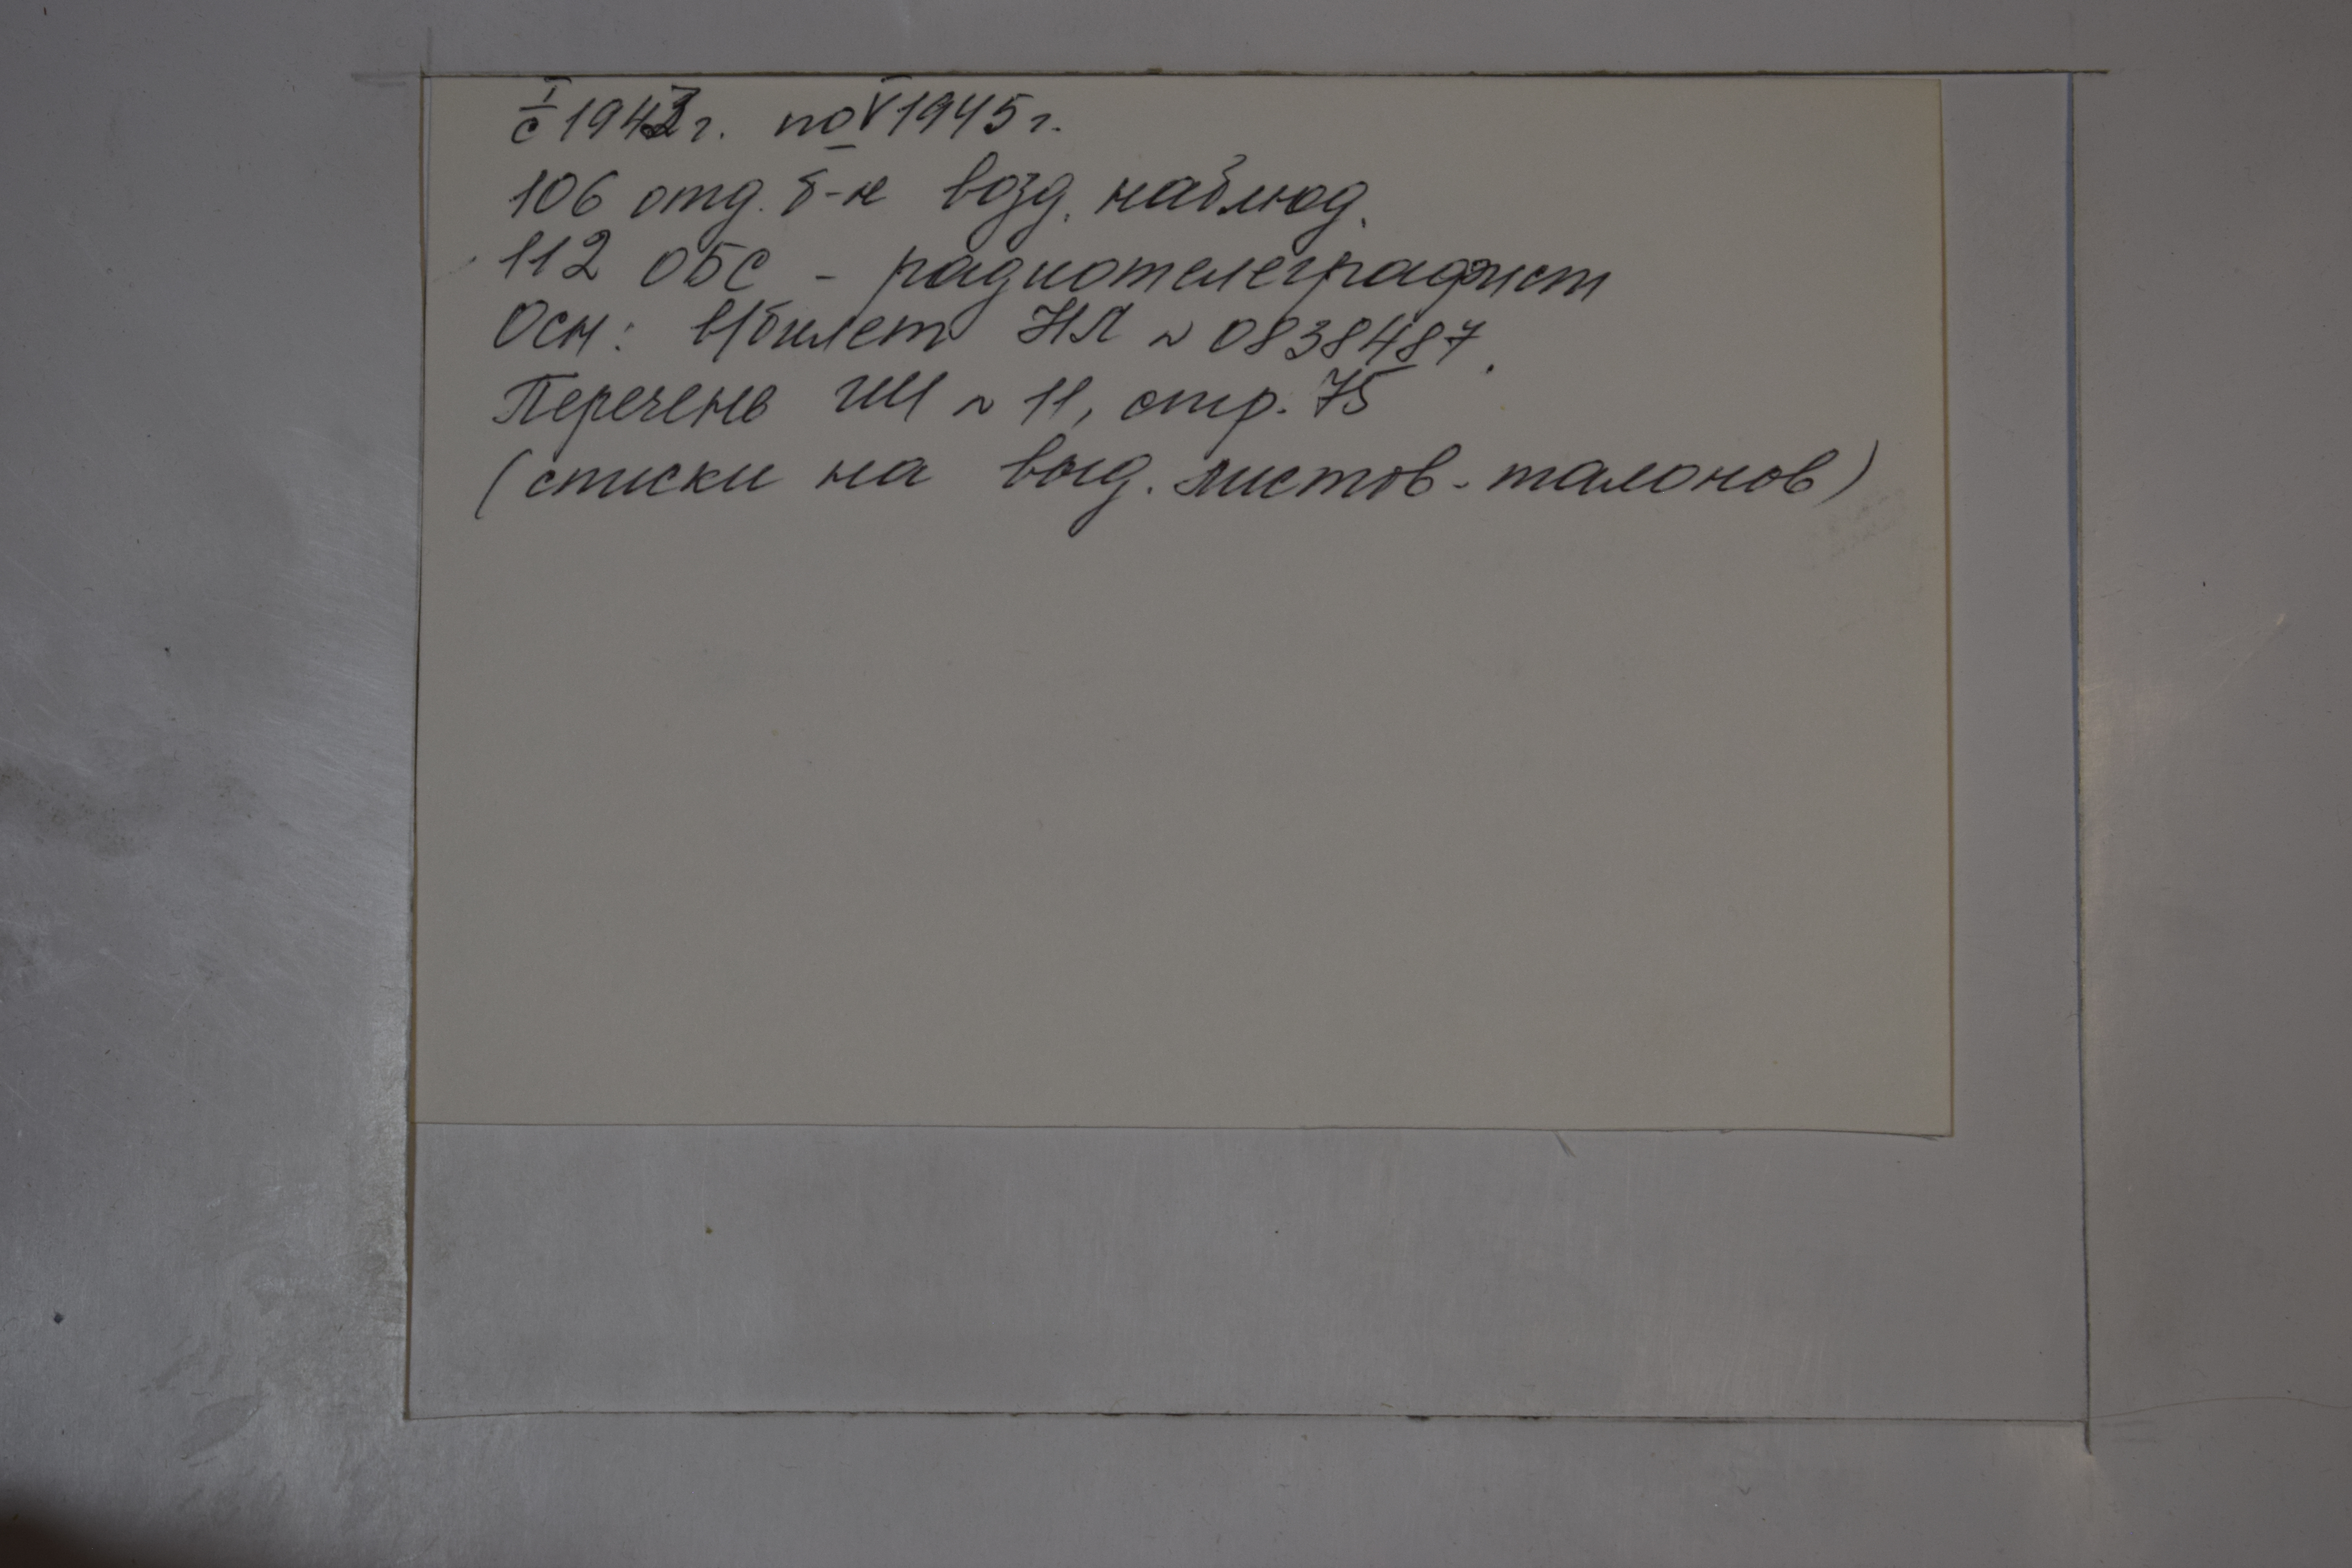 с I 1943 г. по V 1945 г.
106 отд. б-н возд. наблюд.
112 ОБС - радиотелеграфист
Осн: в/билет НЛ № 0838487.
Перечень ГШ № 11, стр. 75
(списки на выд. листов-талонов)